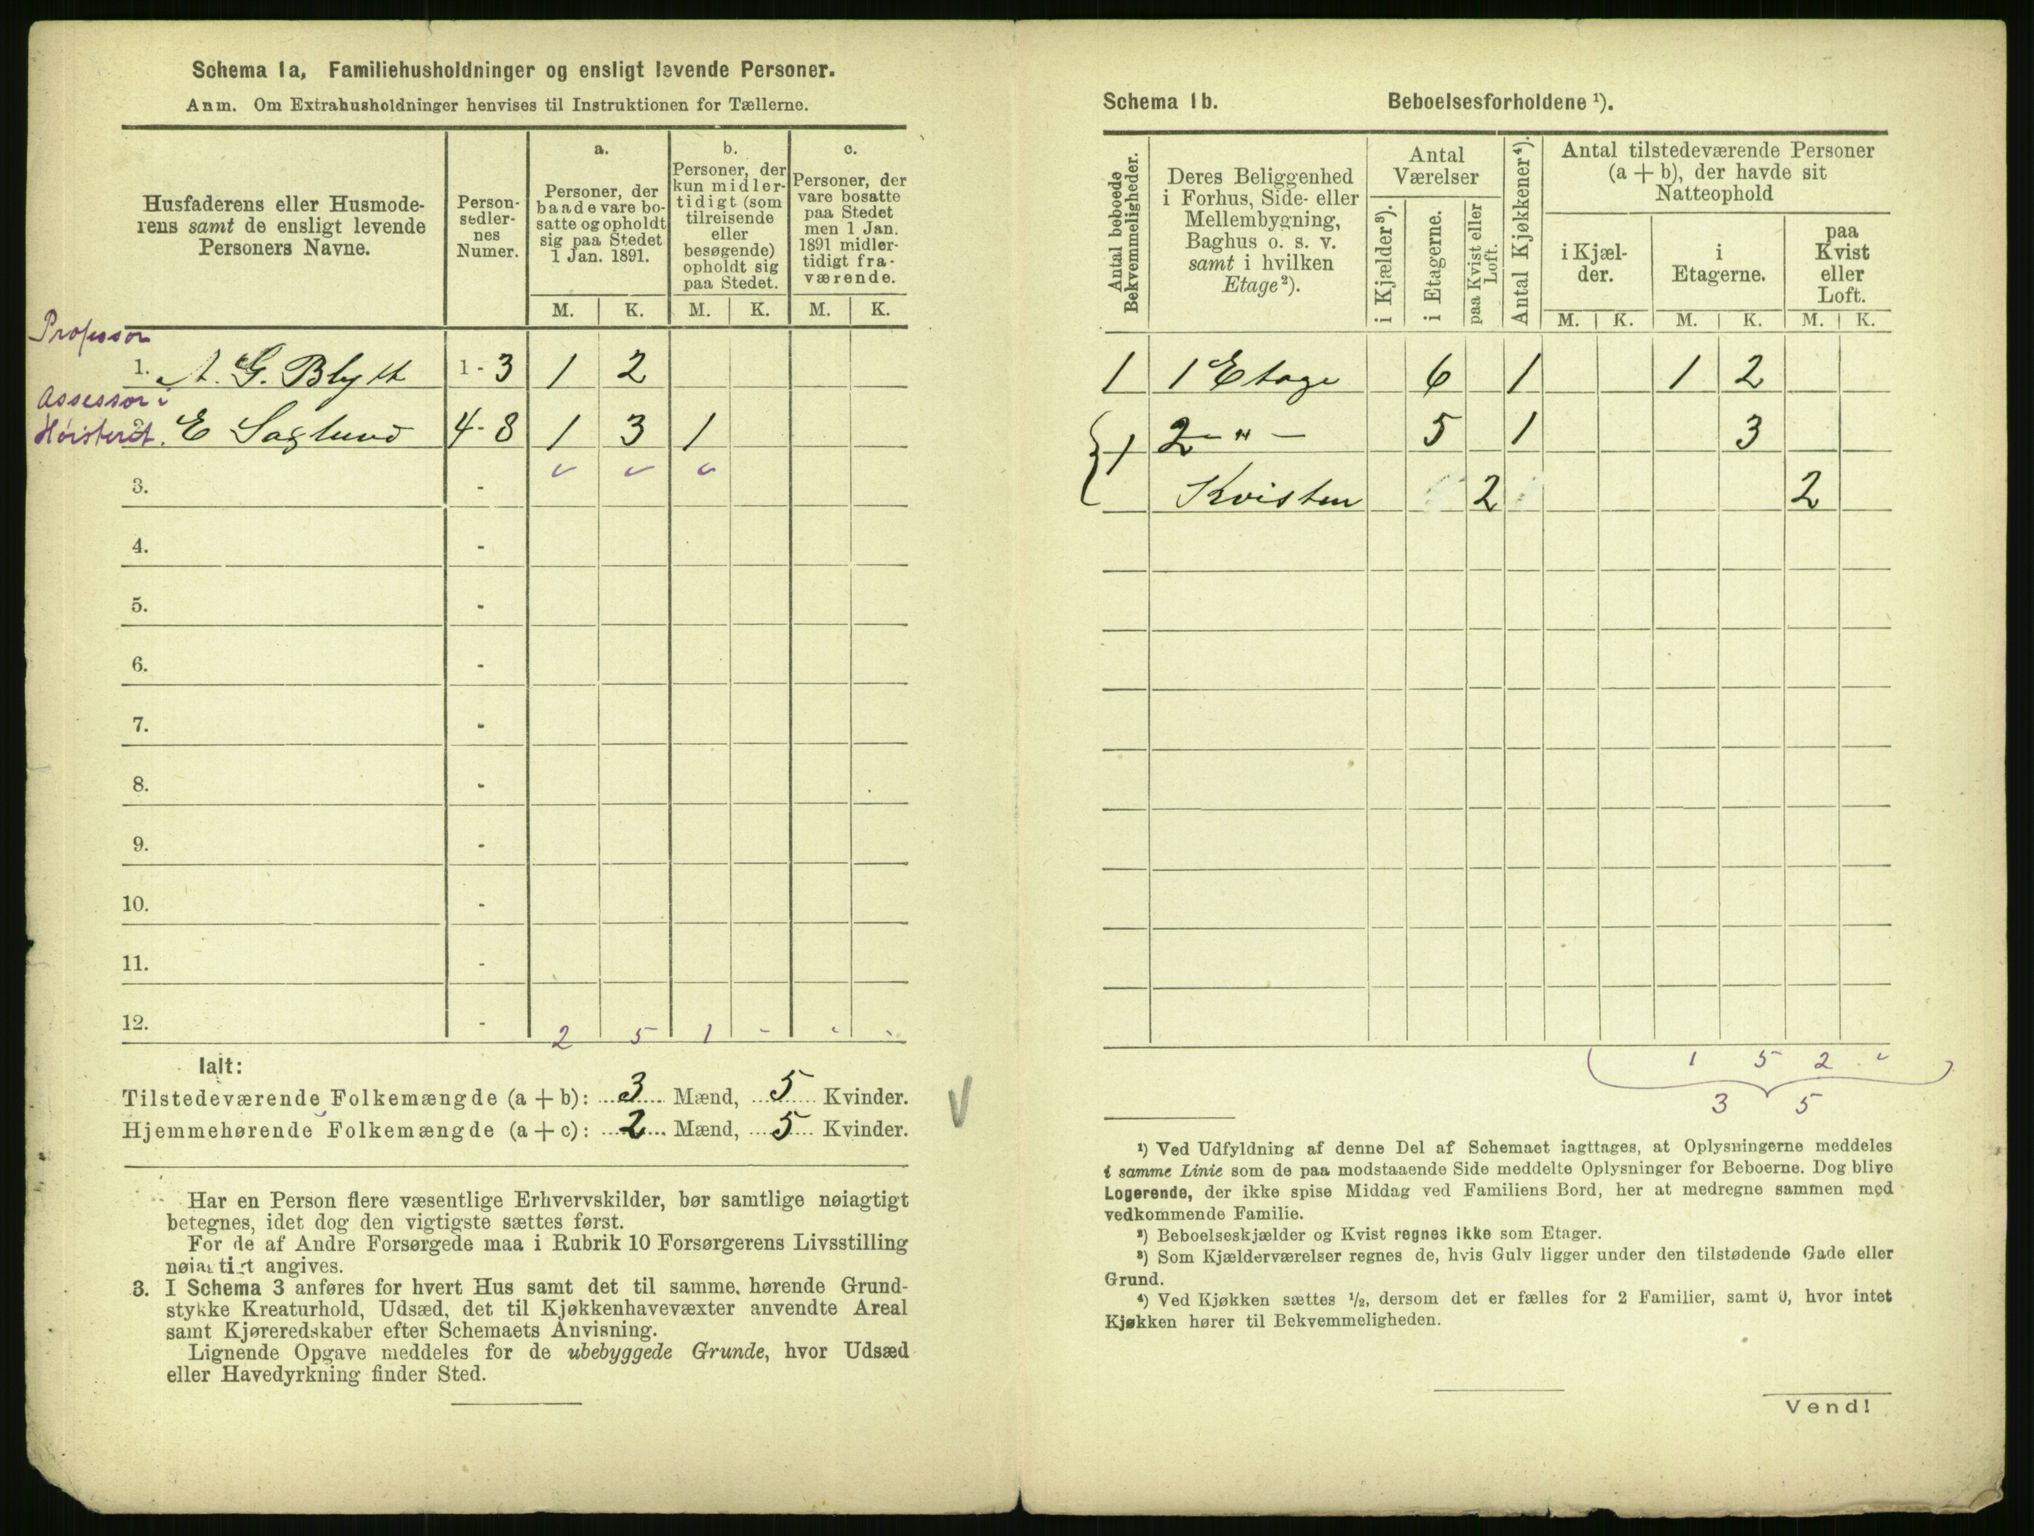 Schema 1a, Familiehusholdninger og ensligt levende Personer.
Anm. Om Extrahusholdninger henvises til Instruktionen for Tællerne.
Husfaderens eller Husmode-
rens samt de ensligt levende
Personers Navne.
Person-
sedler-
nes
Numer.
a.
Personer, der
baade vare bo-
satte og opholdt
sig paa Stedet
1 Jan. 1891.
b.
Personer, der
kun midler-
tidigt (som
tilreisende
eller
besøgende)
opholdt sig
paa Stedet.
c.
Personer, der
vare bosatte
paa Stedet
men 1 Jan.
1891 midler-
tidigt fra-
værende.
M. K. M. K. M. K.
Professor
1. A. G. Blytt 1 - 3 1 2
Assessor i
Høisteret. 2. E Saglund 4 - 8 1 3 1
3. -
4. -
5. -
6. -
7. -
8. -
9. -
10. -
11. -
12. -
2 5 1 - - -
Ialt:
Tilstedeværende Folkemængde (a + b): 3 Mænd, 5 Kvinder.
Hjemmehørende Folkemængde (a + c): 2 Mænd, 5 Kvinder.
Har en Person flere væsentlige Erhvervskilder, bør samtlige nøiagtigt
betegnes, idet dog den vigtigste sættes først.
For de af Andre Forsørgede maa i Rubrik 10 Forsørgerens Livsstilling
nøiagtigt angives.
3. I Schema 3 anføres for hvert Hus samt det til samme hørende Grund-
stykke Kreaturhold, Udsæd, det til Kjøkkenhavevæxter anvendte Areal
samt Kjøreredskaber efter Schemaets Anvisning.
Lignende Opgave meddeles for de ubebyggede Grunde, hvor Udsæd
eller Havedyrkning finder Sted.
Schema 1b. Beboelsesforholdene ¹).
Antal beboede
Bekvemmeligheder.
Deres Beliggenhed
i Forhus, Side- eller
Mellembygning,
Baghus o. s. v.
samt i hvilken
Etage²).
Antal
Værelser
i Kjælder³).
i Etagerne.
paa Kvist eller
Loft.
Antal Kjøkkener⁴).
Antal tilstedeværende Personer
(a + b), der havde sit
Natteophold
i Kjæl-
der.
i
Etagerne.
paa
Kvist
eller
Loft.
M. K. M. K. M. K.
1 1 Etage 6 1 1 2
1 2 - " - 5 1 3
Kvisten 2 2
1 5 2
3 5
¹) Ved Udfyldning af denne Del af Schemaet iagttages, at Oplysningerne meddeles
i samme Linie som de paa modstaaende Side meddelte Oplysninger for Beboerne. Dog blive
Logerende, der ikke spise Middag ved Familiens Bord, her at medregne sammen med
vedkommende Familie.
²) Beboelseskjælder og Kvist regnes ikke som Etager.
³) Som Kjælderværelser regnes de, hvis Gulv ligger under den tilstødende Gade eller
Grund.
⁴) Ved Kjøkken sættes ½, dersom det er fælles for 2 Familier, samt 0, hvor intet
Kjøkken hører til Bekvemmeligheden.
Vend!